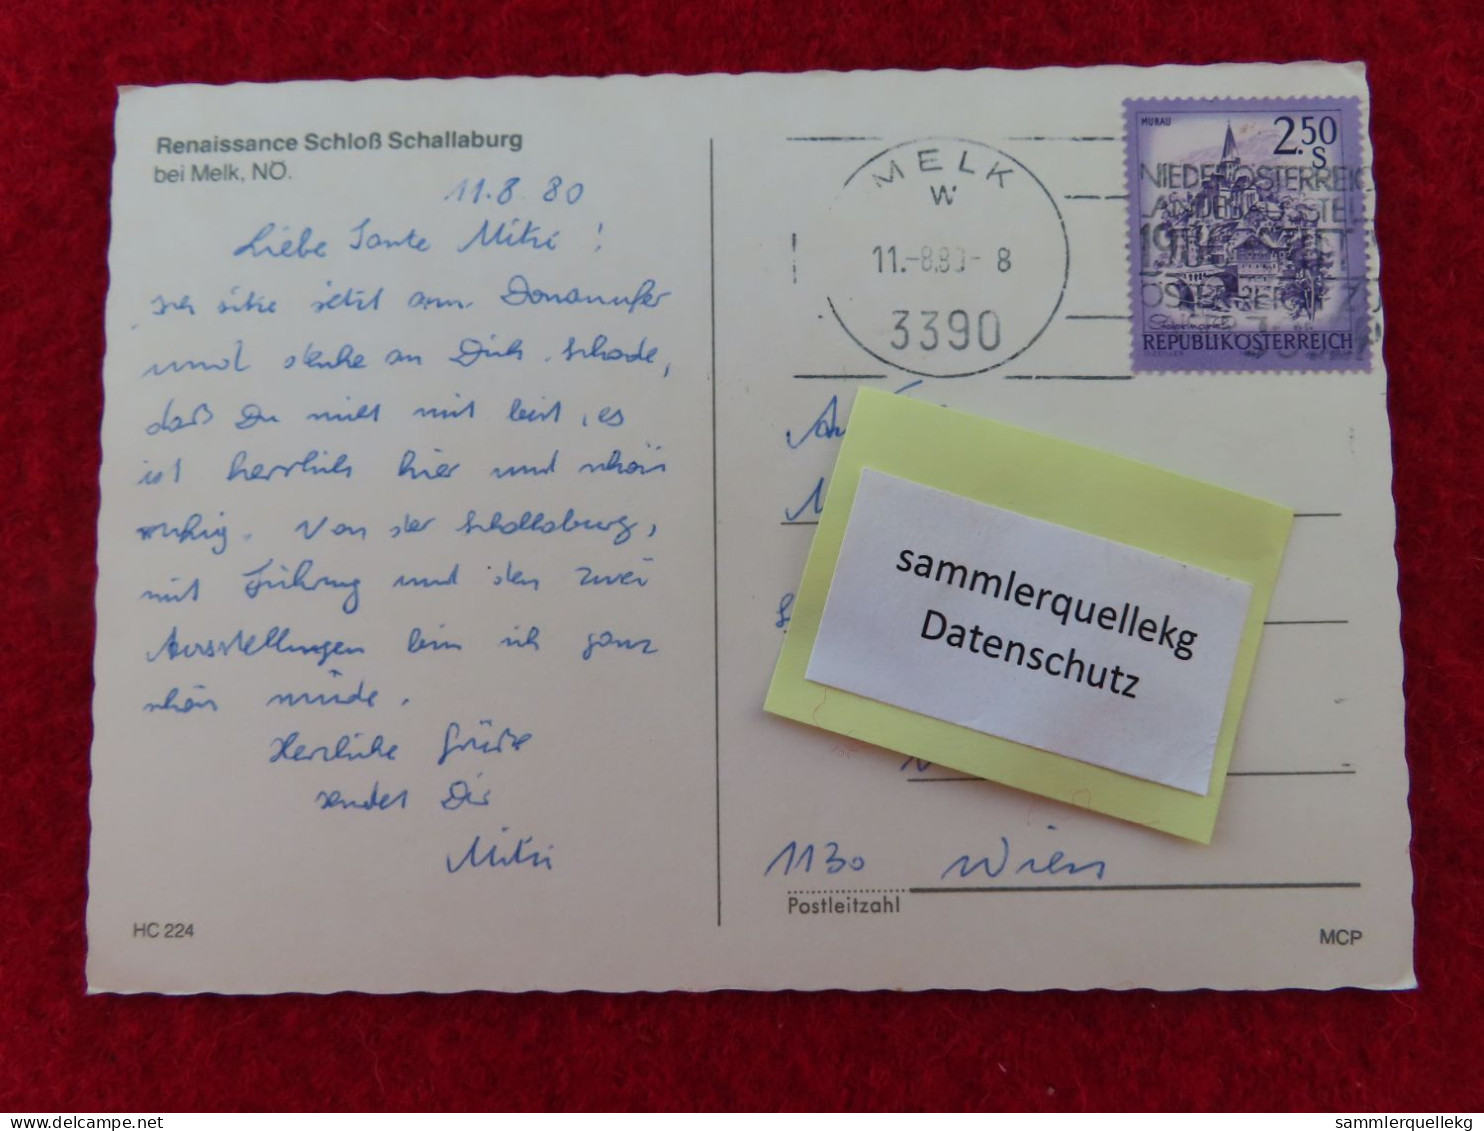 Renaissance Schloß Schallaburg
bei Melk, NÖ.
11.8.80
Liebe Tante Mitzi!
sitze jetzt am Donauufer
und denke an Dich. Schade,
daß Du nicht mit bist, es
ist herrlich hier und schön
ruhig. Von der Schallaburg,
mit Führung und den zwei
Ausstellungen bin ich ganz
schön müde.
Herzliche Grüße
sendet Dir
Mitzi
HC 224
MELK
W
11.-8.80- 8
3390
MURAU
2.50
S
NIEDERÖSTERREICH
REPUBLIK ÖSTERREICH
sammlerquellekg
Datenschutz
1130 Wien
Postleitzahl
MCP
delcampe.net
sammlerquellekg